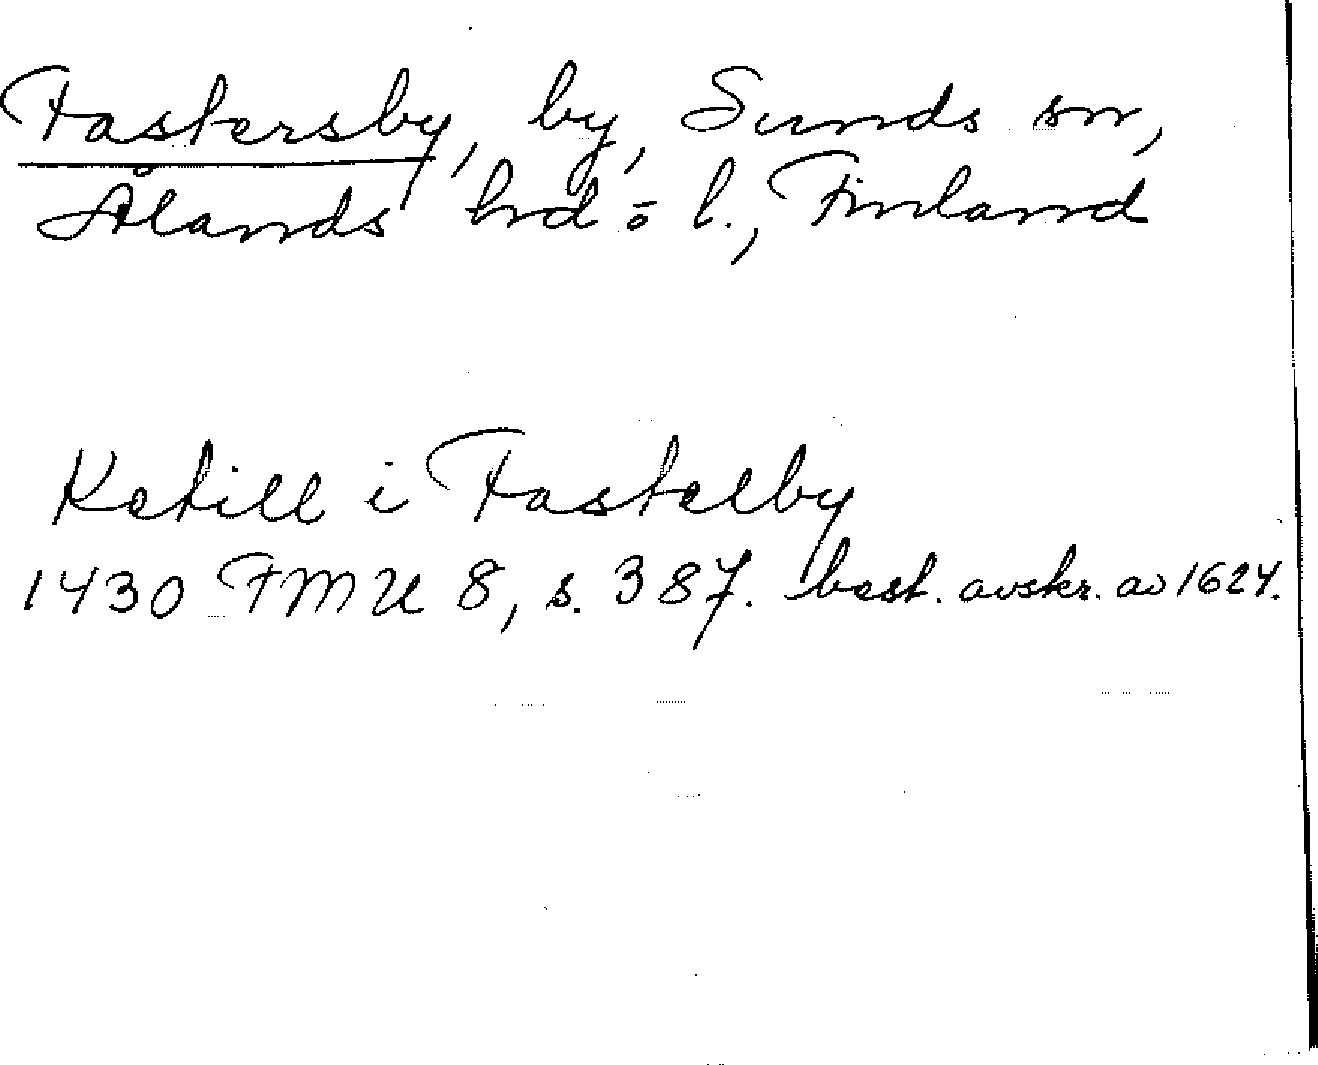 Fastersby, by, Sunds sn,
Ålands hrd o l., Finland
Ketill i Fastelby
1430 FMU 8, s. 387. best. avskr. av 1624.